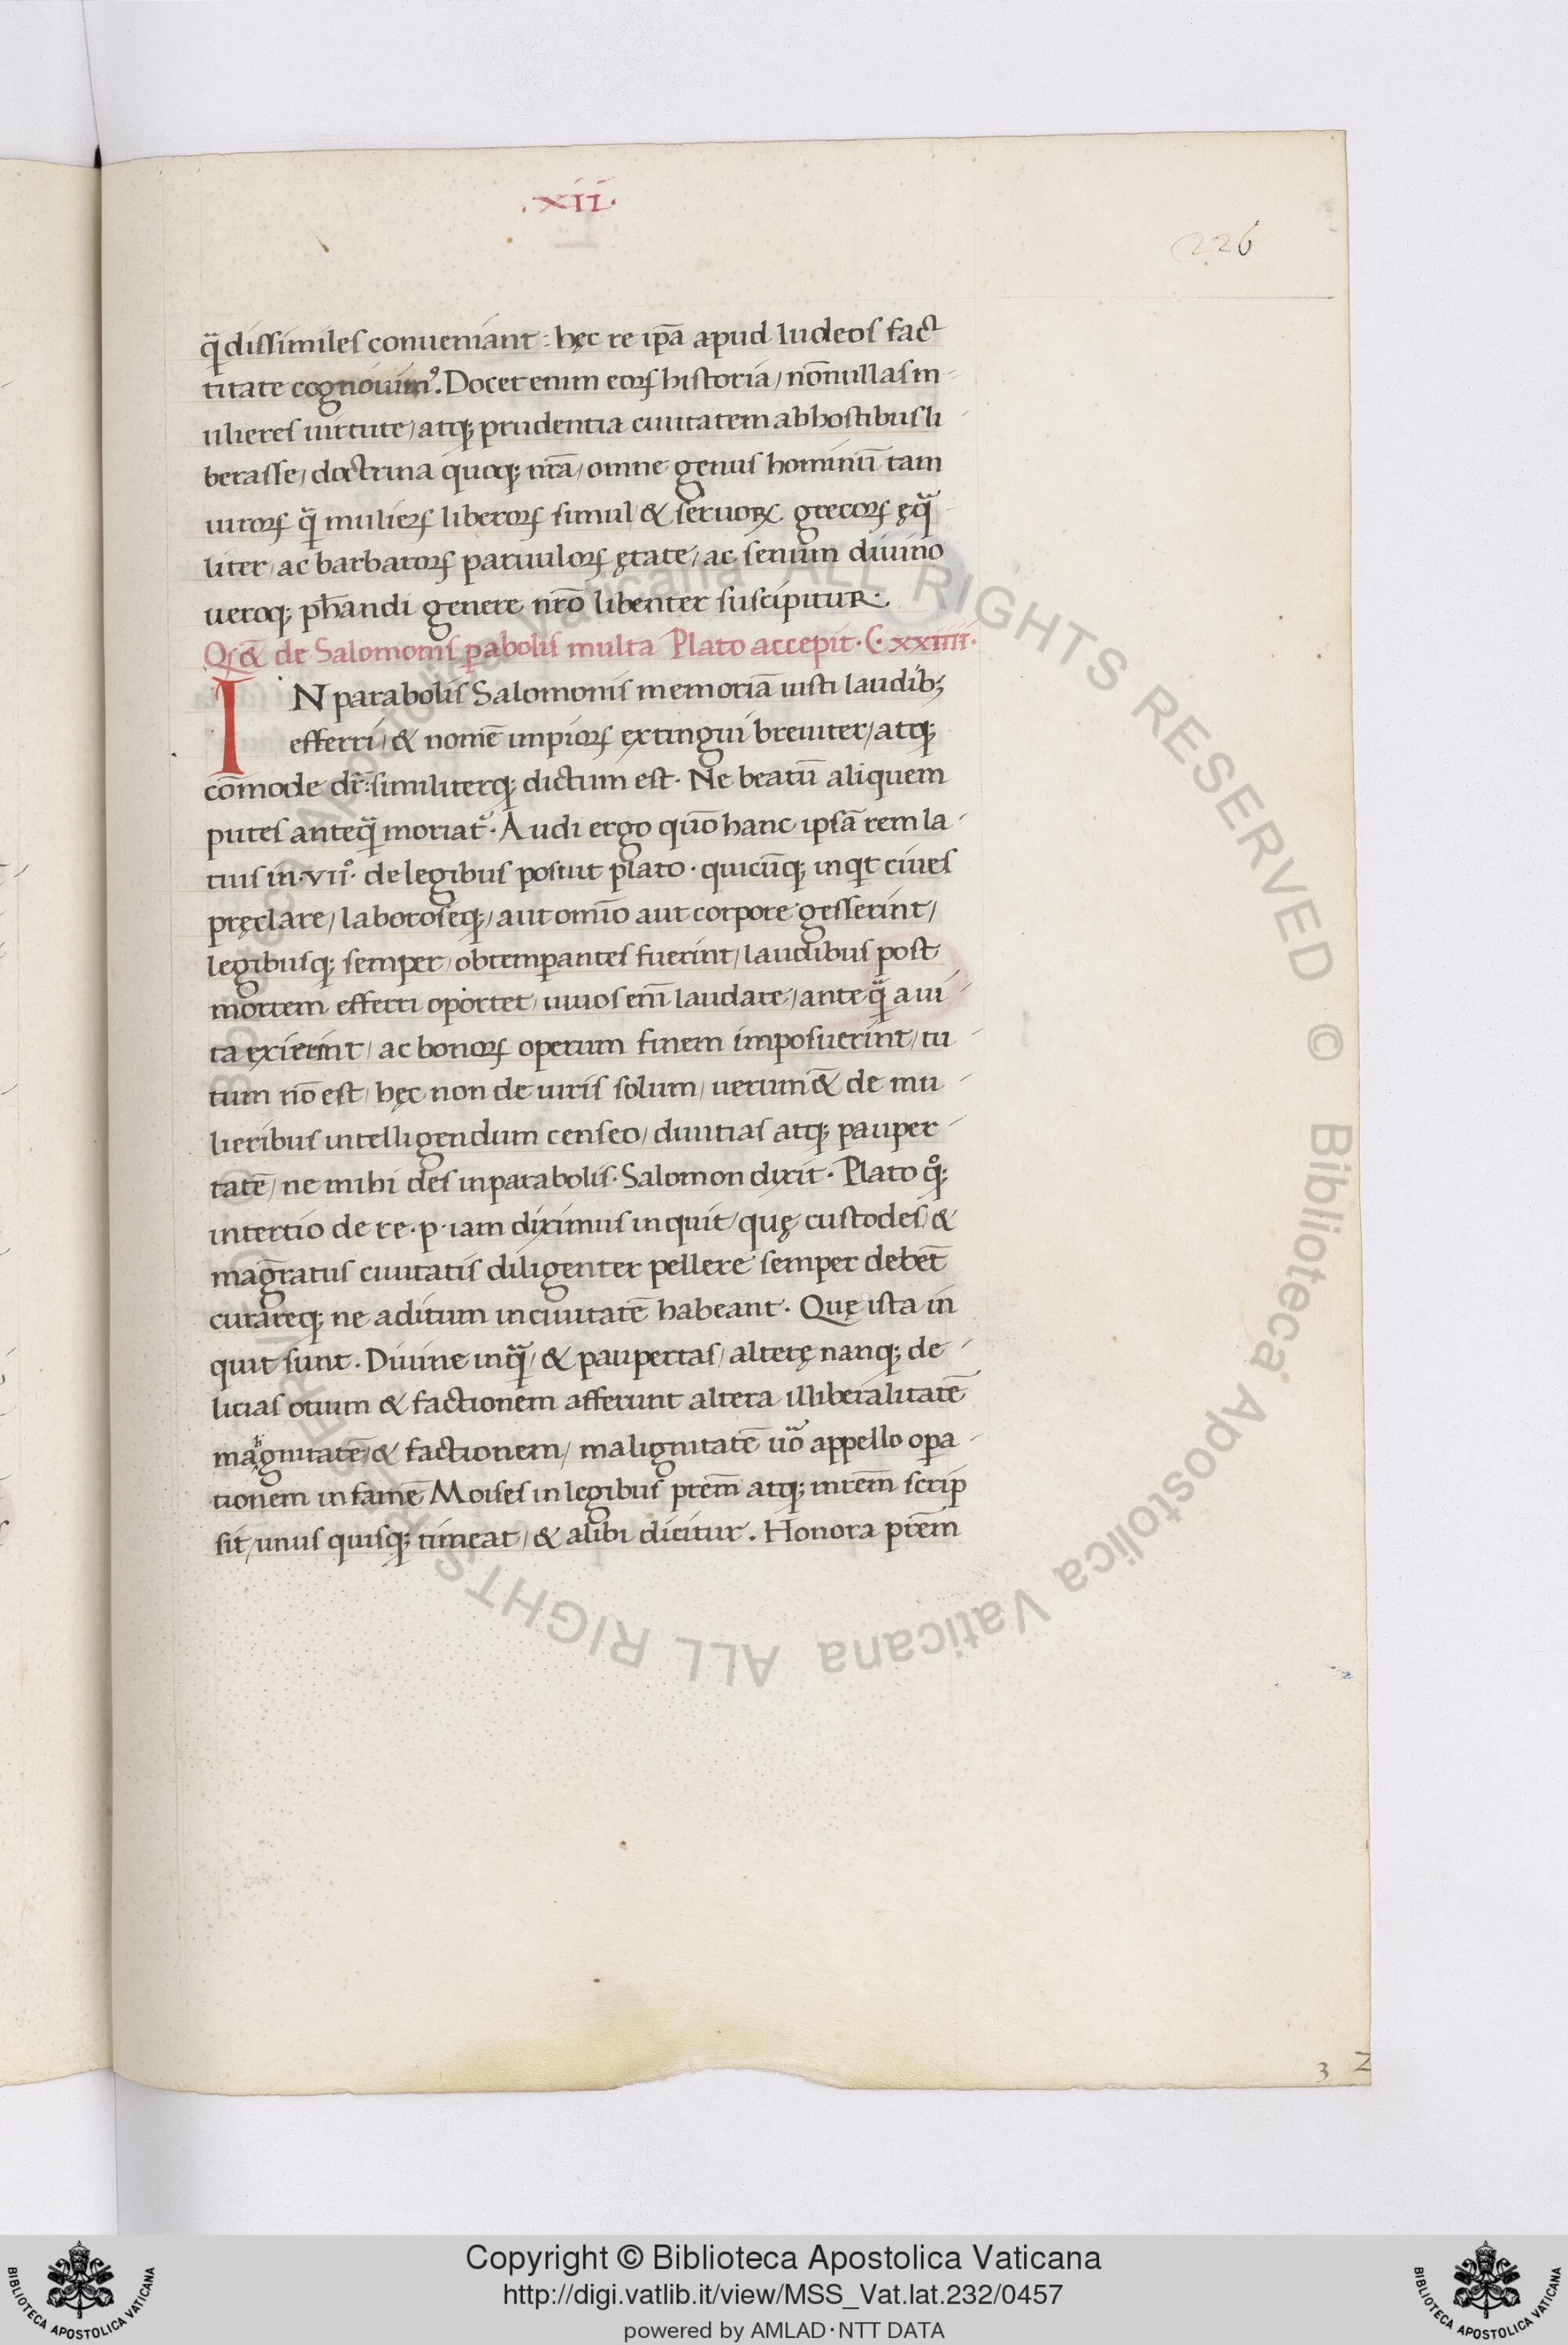 .XII.
226
q̃ dissimiles conueniant: hęc re ip̃a apud Iudeos fact
titate cognouim᾿. Docet enim eoꝝ historia / nōnullas m-
ulieres uirtute / atq; prudentia ciuitatem ab hostibus li-
berasse / doctrina quoq; nr̃a / omne genus hominū tam
uiroꝝ q̃ mulieꝝ liberoꝝ simul / & seruoꝝ grecoꝝ ęq̃-
liter / ac barbaroꝝ paruuloꝝ ętate / ac senum diuino
ueroq; ph̃andi genere nr̃o libenter suscipitur.
Qꝫ & de Salomonis pabolis multa Plato accepit. C. xxiiii.
IN parabolis Salomonis memoriā iusti laudibꝫ
efferri / & nomē impioꝝ extingui breuiter / atq;
cōmode dr̃: similiterq; dictum est. Ne beatū aliquem
putes anteq̃ moriat᾿. Audi ergo quō hanc ipsā rem la-
tius in .VII°. de legibus posuit plato. quicūq; inqt ciues
pręclare / laboroseq; / aut omīo aut corpore gesserint /
legibusq; semper / obtempantes fuerint / laudibus post
mortem efferri oportet / uiuos em̄ laudare / ante q̃ a ui-
ta exierint / ac bonoꝝ operum finem imposuerint / tu-
tum nō est / hęc non de uiris solum / uerum & de mu-
lieribus intelligendum censeo / diuitias atq; pauper-
tatē / ne mihi des in parabolis. Salomon dixit. Plato q°;
in tertio de re. p. iam diximus inquit / quę custodes / &
mag̃ratus ciuitatis diligenter pellere semper debēt
curareq; ne aditum in ciuitatē habeant. Quę ista in
quit sunt. Diuine inq̃ / & paupertas / alterę nanq; de-
licias otium & factionem afferunt altera illiberalitatē
magnitatē / & factionem / malignitatē uō appello opa-
tionem infamē Moises in legibus prēm atq; mrēm scrip
sit / unus quisq; timeat / & alibi dicitur. Honora prēm
3 Z
Copyright © Biblioteca Apostolica Vaticana
http://digi.vatlib.it/view/MSS_Vat.lat.232/0457
powered by AMLAD·NTT DATA
BIBLIOTECA APOSTOLICA VATICANA
BIBLIOTECA APOSTOLICA VATICANA
© Biblioteca Apostolica Vaticana ALL RIGHTS RESERVED © Biblioteca Apostolica Vaticana ALL RIGHTS RESERVED